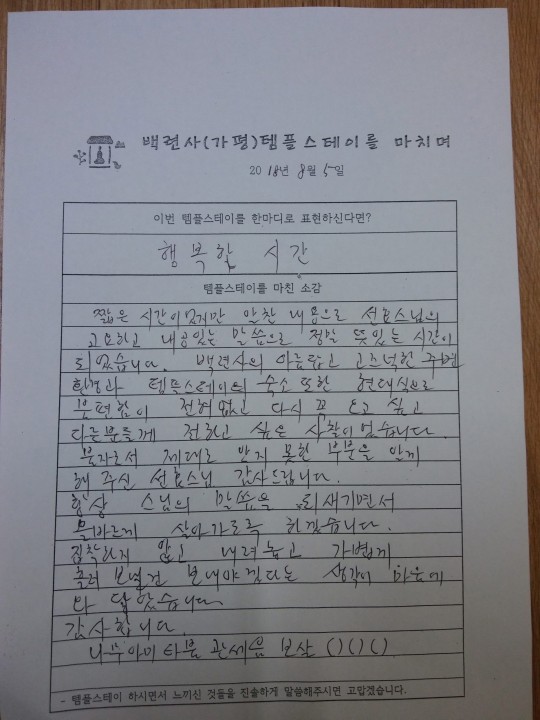 백련사(가평)템플스테이를 마치며
2018년 8월 5일
이번 템플스테이를 한마디로 표현하신다면?
행복한 시간
템플스테이를 마친 소감
짧은 시간이었지만 알찬 내용으로 선효스님의
고요하고 내공있는 말씀으로 정말 뜻있는 시간이
되었습니다. 백련사의 아름답고 고즈넉한 주변
환경과 템플스테이의 숙소 또한 현대식으로
불편함이 전혀 없고 다시 꼭 오고 싶고
다른분들께 전하고 싶은 사찰이었습니다.
불자로서 제대로 알지 못한 부분을 알게
해 주신 선효스님 감사드립니다.
항상 스님의 말씀을 되새기면서
올바르게 살아가도록 하겠습니다.
집착하지 않고 내려놓고 가볍게
흘려 보낼건 보내야겠다는 생각이 마음에
와 닿았습니다.
감사합니다.
나무아미타불 관세음 보살 ()()()
- 템플스테이 하시면서 느끼신 것들을 진솔하게 말씀해주시면 고맙겠습니다.